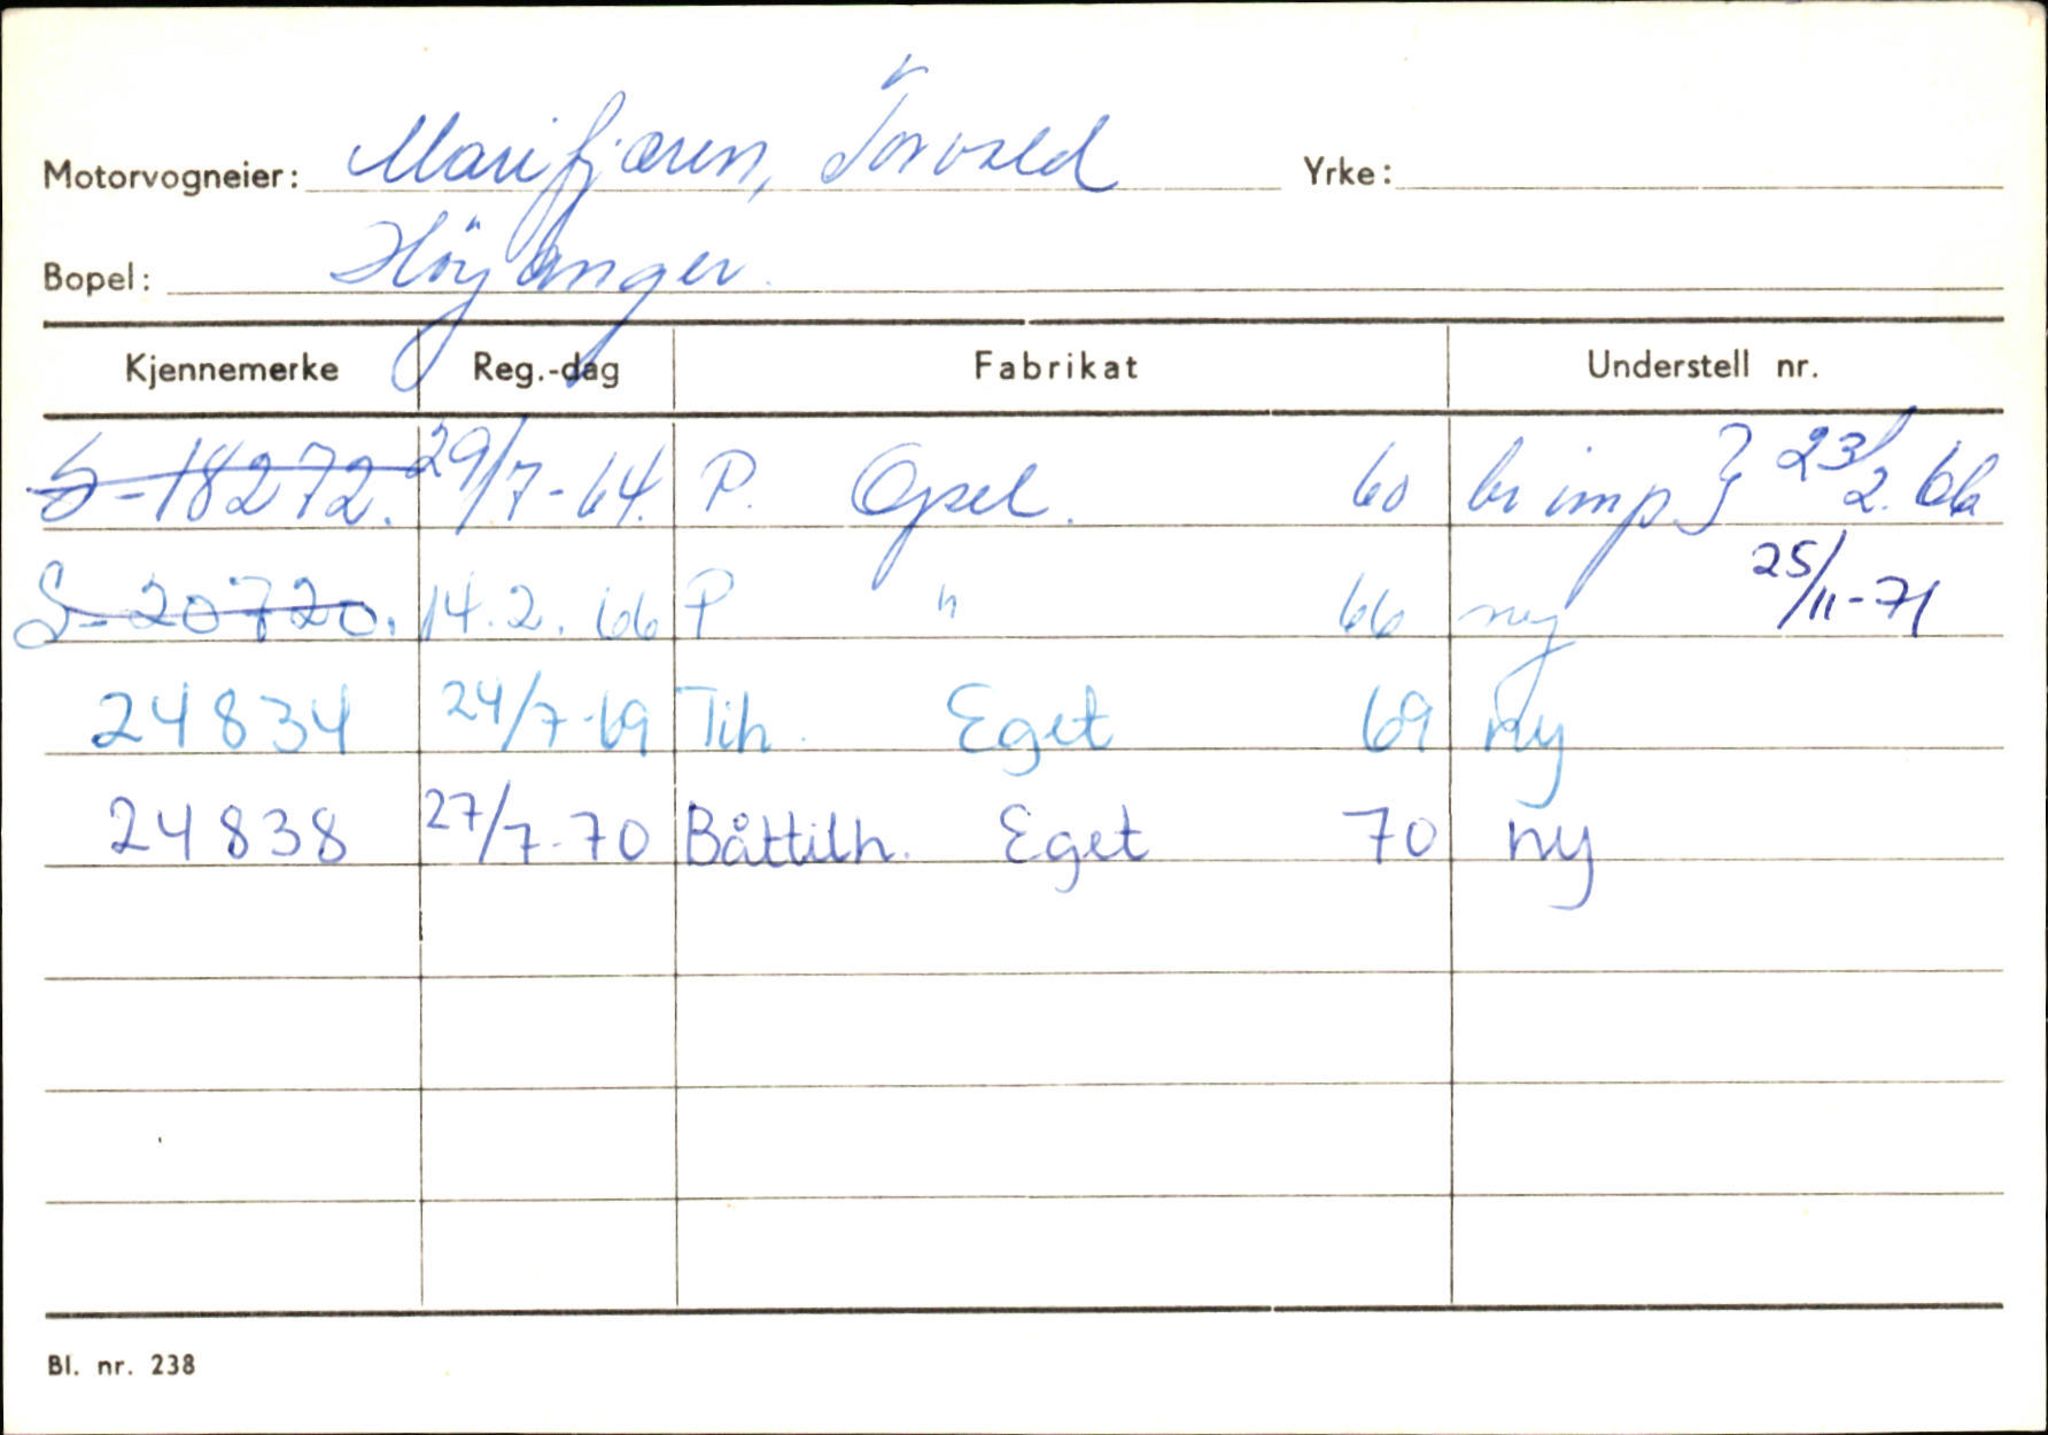 Motorvogneier: Marifjæren, Torvald Yrke:
Bopel: Höyanger.
Kjennemerke Reg.-dag Fabrikat Understell nr.
S-18272. 29/7-64. P. Opel. 60 br imp. } 23/2. 66
S-20720. 14.2.66 P " 66 ny 25/11-71
24834 24/7-69 Tilh. Eget 69 ny
24838 27/7-70 Båttilh. Eget 70 ny
Bl. nr. 238